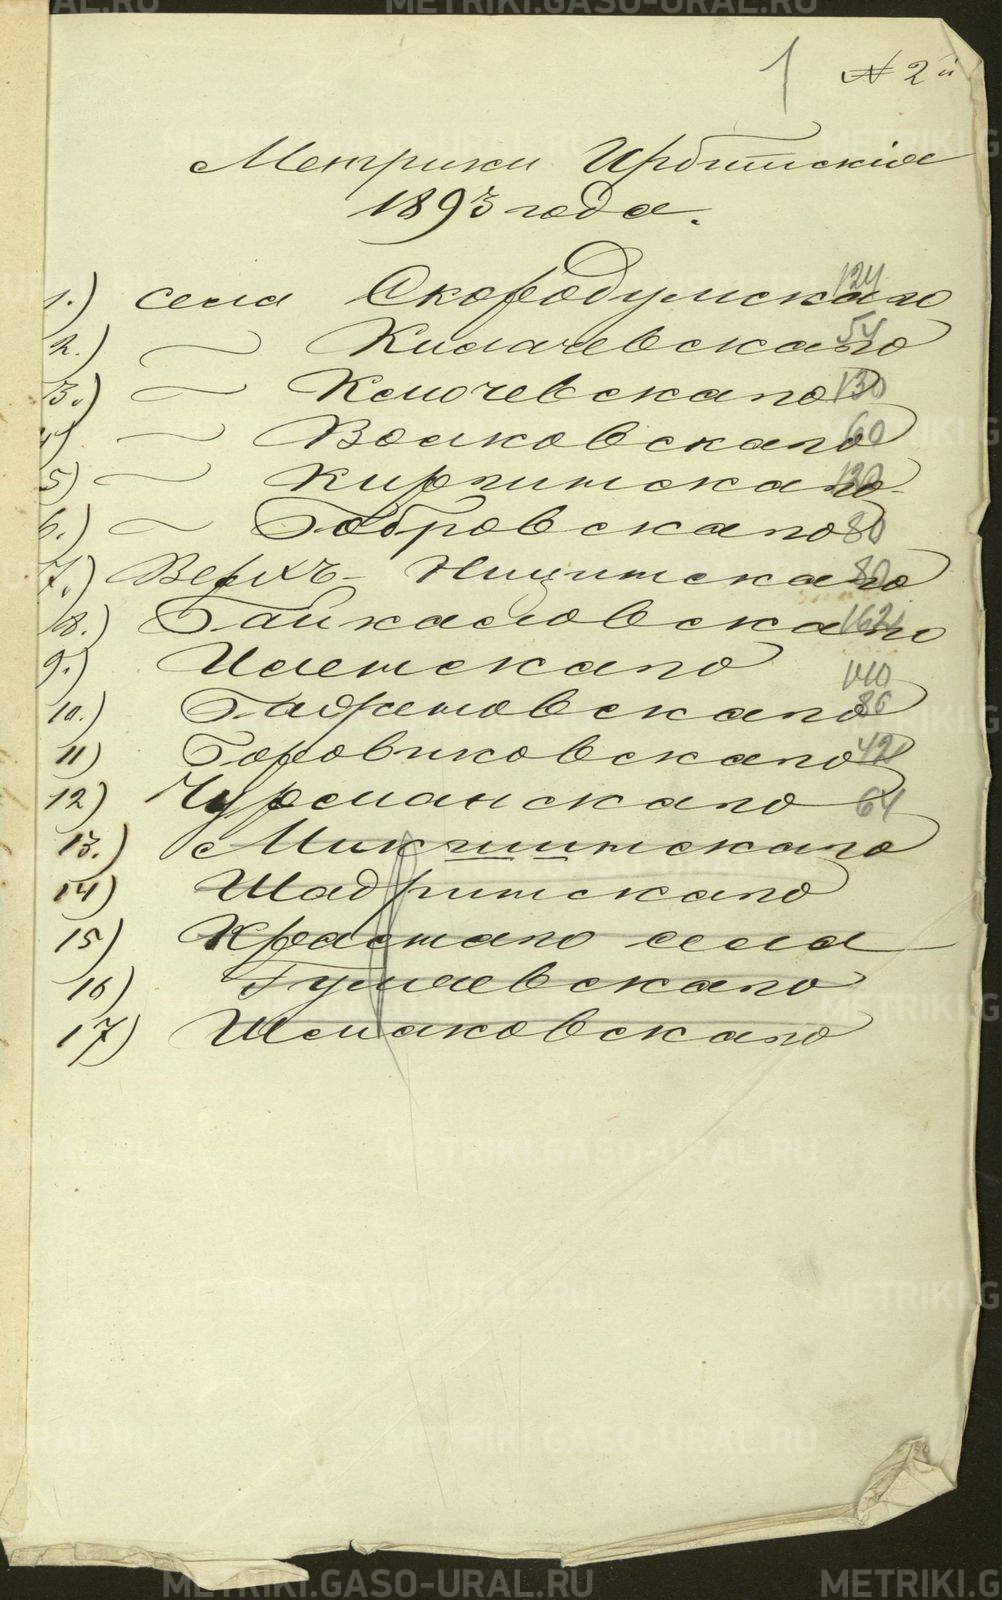 1 № 2й
Метрики Ирбитскія
1893 года.
1.) села Скородумскаго 124
2.) — Килачевскаго 54
3.) — Ключевскаго 130
4) — Волковскаго 60
5) — Киргинскаго 120
6.) — Бобровскаго 80
7.) Верхъ-Ницинскаго 80
8.) Байкаловскаго 162
9.) Иленскаго 110
10.) 86
11) Боровиковскаго 42
12) Чурманскаго 64
13.) Мик шинскаго
14) Шадринскаго
15) Краснаго села
16) Гуляевскаго
17) Шмаковскаго
METRIKI.GASO-URAL.RU